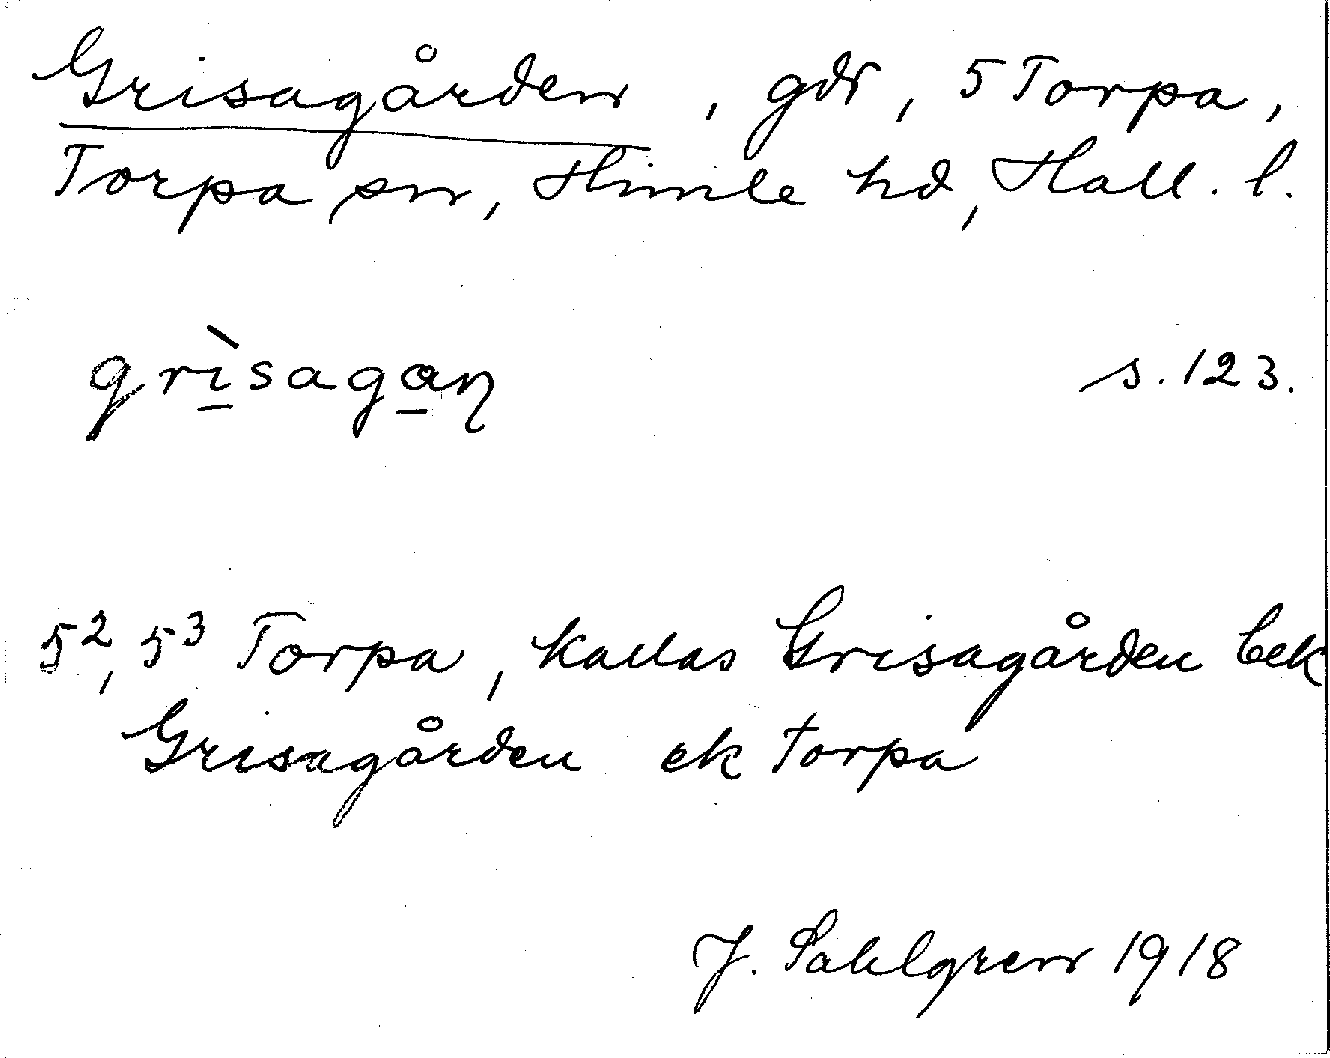 Grisagården, gdr, 5 Torpa,
Torpa sn, Himle hd, Hall. l.
grìsagaɳ s. 123.
5², 5³ Torpa, kallas Grisagården bek
Grisagården ek Torpa
J. Sahlgren 1918